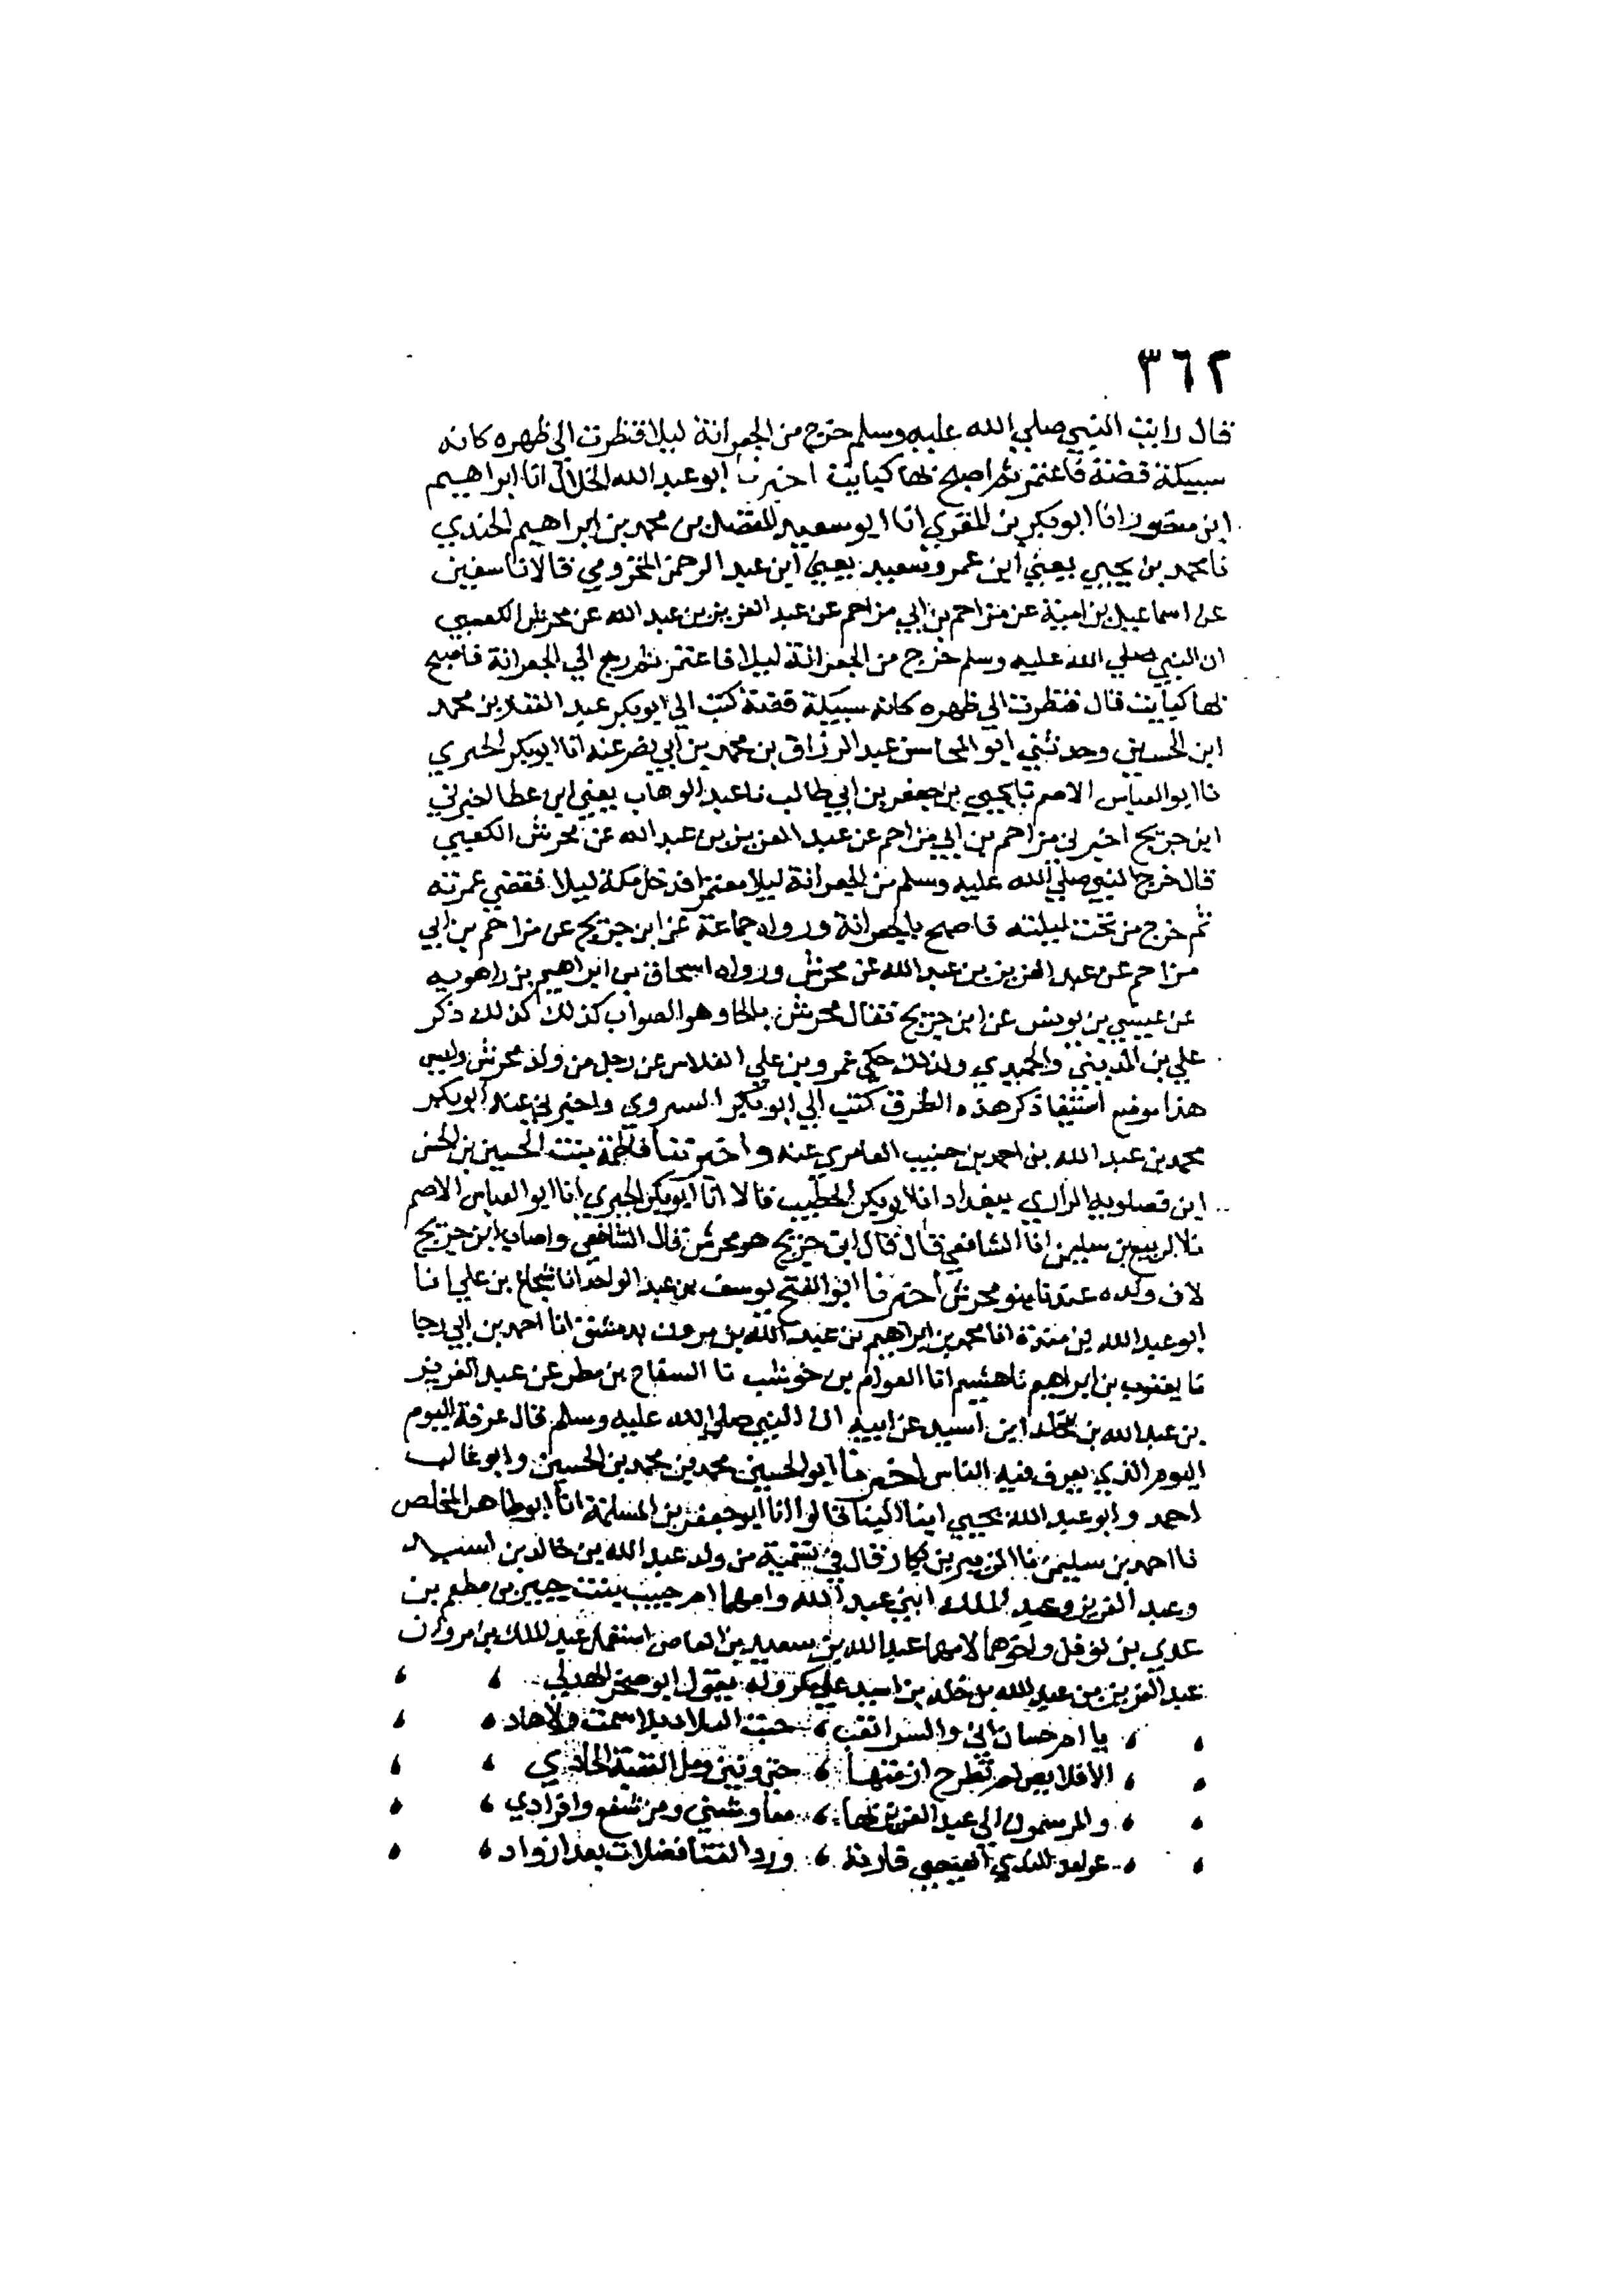 ٣٦٢
قال رايت النبي صلي الله عليه وسلم خرج من الجعرانة ليلا فنظرت الي ظهره كانه
سبيكة فضة فاعتمر ثم اصبح بها كبايت اخبرنا ابو عبد الله الخلال انا ابراهيم
ابن منصور انا ابو بكر بن المقري انا ابو سعيد المفضل بن محمد بن ابراهيم الجندي
نا محمد بن يحيي يعني ابن عمر وسعيد يعني ابن عبد الرحمن المخزومي قالا نا سفين
عن اسماعيل بن امية عن مزاحم بن ابي مزاحم عن عبد العزيز بن عبد الله عن محرش الكعبي
ان النبي صلي الله عليه وسلم خرج من الجعرانة ليلا فاعتمر ثم رجع الي الجعرانة فاصبح
بها كبايت قال فنظرت الي ظهره كانه سبيكة فضة كتب الي ابو بكر عبد الغفار بن محمد
ابن الحسين وحدثني ابو المحاسن عبد الرزاق بن محمد بن ابي نصر عنه انا ابو بكر الحيري
نا ابو العباس الاصم نا يحيي بن جعفر بن ابي طالب نا عبد الوهاب يعني ابن عطا اخبرني
ابن جريج اخبرني مزاحم بن ابي مزاحم عن عبد العزيز بن عبد الله عن محرش الكعبي
قال خرج النبي صلي الله عليه وسلم من الجعرانة ليلا معتمرا فدخل مكة ليلا فقضي عمرته
ثم خرج من تحت ليلته فاصبح بالجعرانة ورواه جماعة عن ابن جريج عن مزاحم بن ابي
مزاحم عن عبد العزيز بن عبد الله عن محرش ورواه اسحاق بن ابراهيم بن راهويه
عن عيسي بن يونس عن ابن جريج فقال محرش بالحا وهو الصواب كذلك كذلك ذكر
علي بن المديني والحميدي ولذلك حكي عمرو بن علي الفلاس عن رجل من ولد محرش وليس
هذا موضع استيفا ذكر هذه الطرق كتب الي ابو بكر السروي واخبرني عنه ابو بكر
محمد بن عبد الله بن احمد بن حبيب العامري عنه واخبرتنا فاطمة بنت الحسين بن الحسن
ابن فضلويه الرازي ببغداد انا ابو بكر الخطيب قالا انا ابو بكر الحيري انا ابو العباس الاصم
نا الربيع بن سليمن انا الشافعي قال قال ابن جريج هو محرش قال الشافعي واصاب ابن جريج
لان ولده عندنا بنو محرش اخبرنا ابو الفتح يوسف بن عبد الواحد انا شجاع بن علي انا
ابو عبد الله بن مندة انا محمد بن ابراهيم بن عبد الله بن مروان بدمشق انا احمد بن ابي رجا
نا يعقوب بن ابراهيم نا هشيم انا العوام بن حوشب نا السفاح بن مطر عن عبد العزيز
بن عبد الله بن خالد ابن اسيد عن ابيه ان النبي صلي الله عليه وسلم قال عرفة اليوم
اليوم الذي يعرف فيه الناس اخبرنا ابو الحسين محمد بن محمد بن الحسين وابو غالب
احمد وابو عبد الله يحيي ابنا البنا قالوا انا ابو جعفر بن المسلمة انا ابو طاهر المخلص
نا احمد بن سليمن نا الزبير بن بكار قال في تسمية من ولد عبد الله بن خالد بن اسيد
وعبد العزيز وعبد الملك ابني عبد الله وامهما ام حبيب بنت جبير بن مطعم بن
عدي بن نوفل واخوهما لامهما عبد الله بن سعيد بن العاص استعمل عبد الملك بن مروان
عبد العزيز بن عبد الله بن خالد بن اسيد علي مكة وله يقول ابو صخر الهذلي
يا ام حسان اني والسر اتعب جبت البلاد بلا سمت ولا هاد
الا قلايص لم تطرح ازمتها حتي ونين ومل العقبة الحادي
والمرسمون الي عبد العزيز بها معا وشتي ومن شفع وافرادي